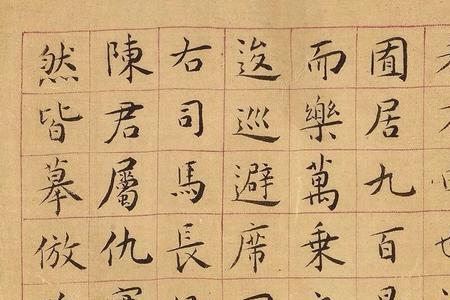 囿居九百
而樂萬乘
逡巡避席
右司馬長
陳君屬仇
然皆摹倣